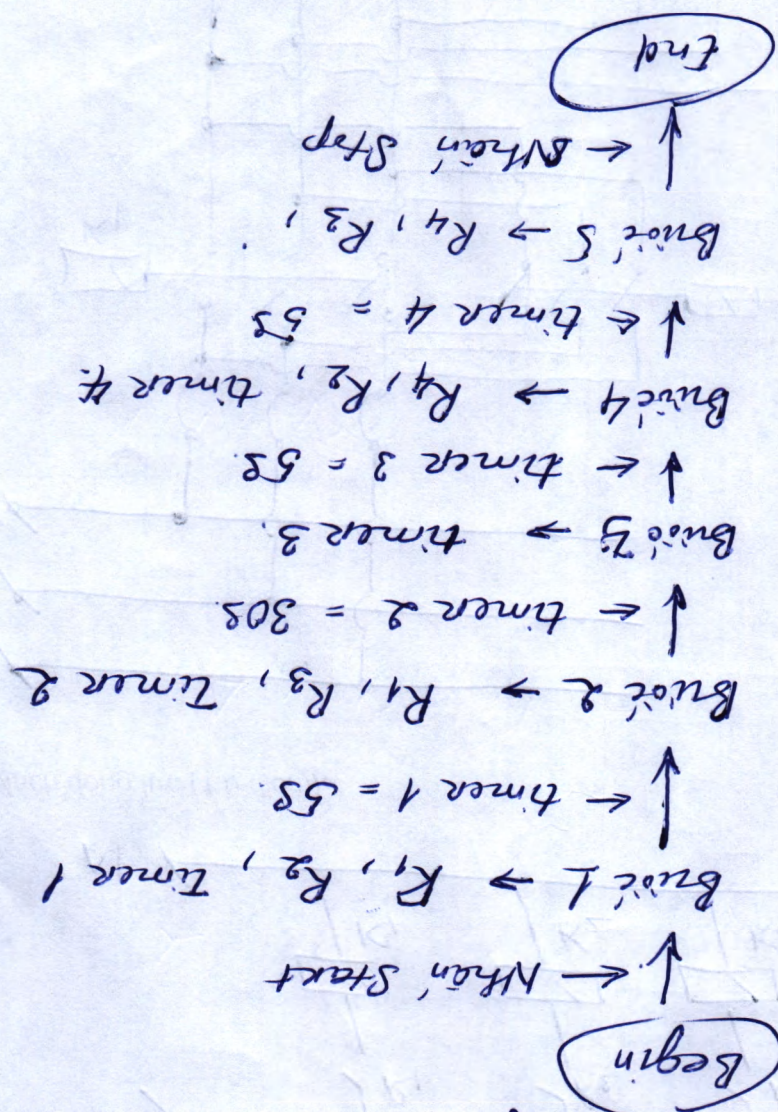 Begin
↓ ← Nhấn Start
Bước 1 → R1, R2, Timer 1
↓ ← timer 1 = 5s.
Bước 2 → R1, R3, Timer 2
↓ ← timer 2 = 30s.
Bước 3 → timer 3.
↓ ← timer 3 = 5s.
Bước 4 → R4, R2, timer 4.
↓ ← timer 4 = 5s
Bước 5 → R4, R3,
↓ ← Nhấn Stop
End